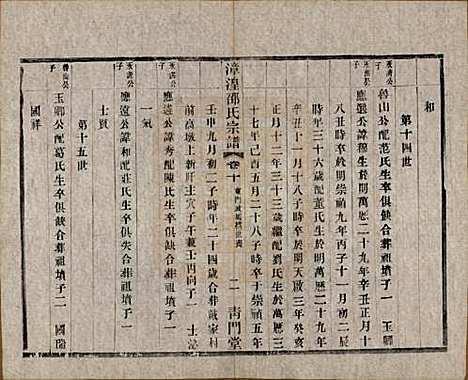 和
第十四世
魯山公配范氏生卒俱缺合葬祖墳子一 玉卿
應選公諱 生於明萬曆二十九年辛丑正月十
八丑時卒於明崇禎九年丙子十一月初二
時年三十六歲配董氏生於明萬曆二十九年
辛丑十一月十八子時卒於明天啟三年癸亥
正月十二年二十三歲繼配劉氏生於明萬曆三
十七年己酉五月二十八子時卒於崇禎五年
漳湟邵氏宗譜
卷十
二
青門堂
壬申九月初二子時年二十四歲合葬戴家村
前高墩上新阡壬寅子午兼壬丙向子一 士
應遠公諱秀配陳氏生卒俱缺合葬祖墳子一
一氣
應遠公諱和配莊氏生卒俱失合葬祖墳子一
士貢
第十五世
魯山公子
玉卿公配葛氏生卒俱缺合葬祖墳子二 國瑞
國祥